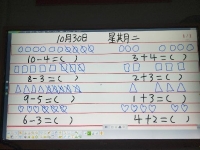 10月30日 星期二
10-4=( ) 3+4=( )
8-3=( ) 2+3=( )
9-5=( ) 1+3=( )
6-3=( ) 4+2=( )